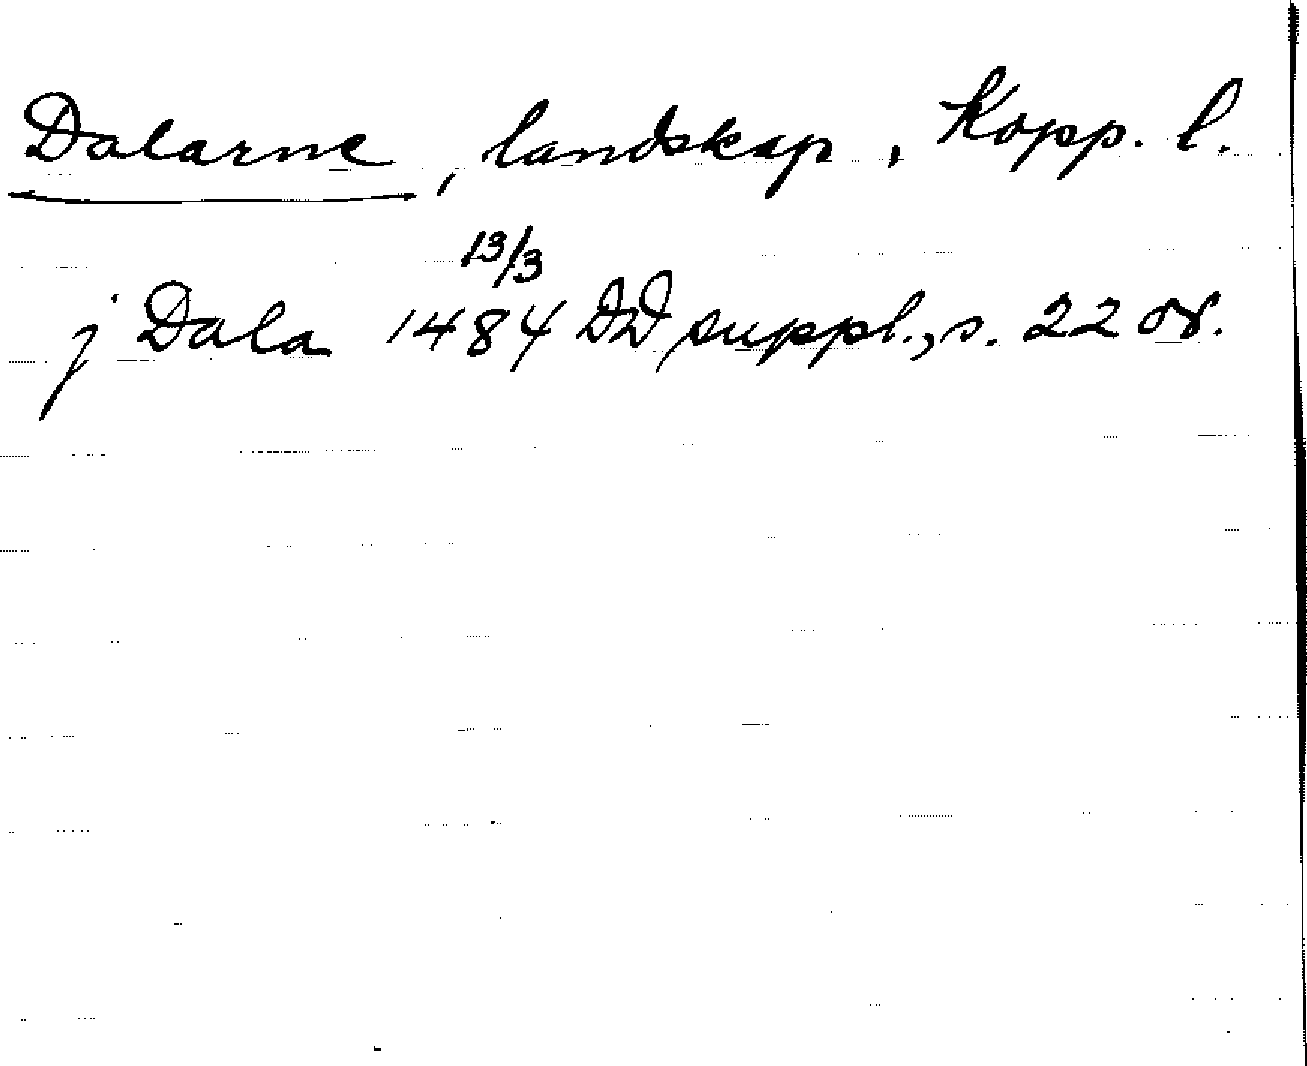 Dalarne, landskap, Kopp. l.
13/3
j Dala 1484 DD suppl., s. 22 or.